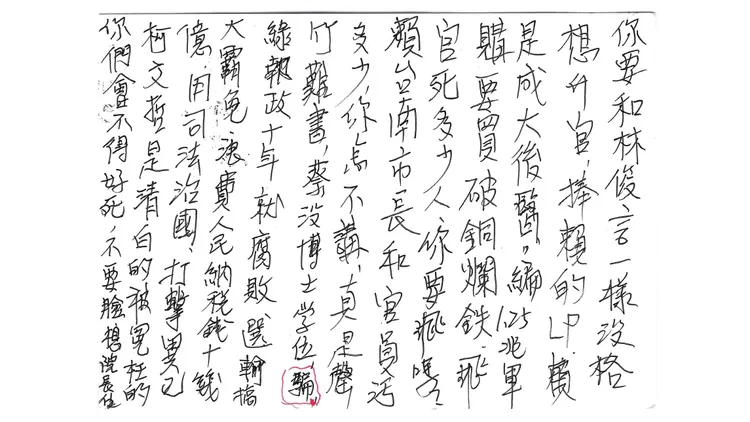 你要和林俊言一樣沒格
想升官,捧賴的LP,賴
是成大後醫,編1.25兆軍
購要買破銅爛鐵,飛
官死多少人,你要飛嗎?
賴台南市長和官員污
多少,你為不講,真是罄
竹難書,蔡沒博士学位,騙,
綠執政十年就腐敗選輸搞
大霸免浪費人民納稅錢十幾
億,用司法治國,打擊異己
柯文哲是清白的被冤枉的
你們會不得好死,不要臉想院長位